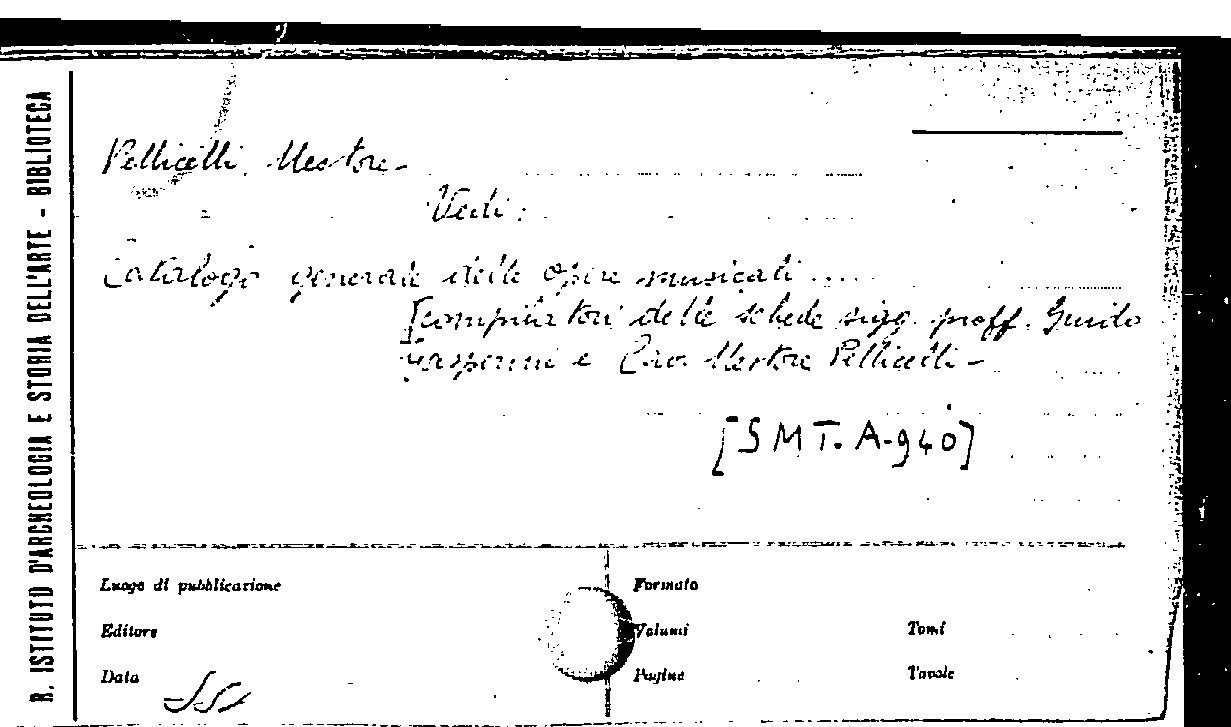 R. ISTITUTO D'ARCHEOLOGIA E STORIA DELL'ARTE - BIBLIOTECA
Pellicelli, Nestore -
Vedi:
Catalogo generale delle opere musicali ....
[compilatori delle schede sigg. proff. Guido
Gasperini e Cav. Nestore Pellicelli -
[SMT. A-940]
Luogo di pubblicazione
Formato
Editore
Volumi
Tomi
Data
Pagine
Tavole